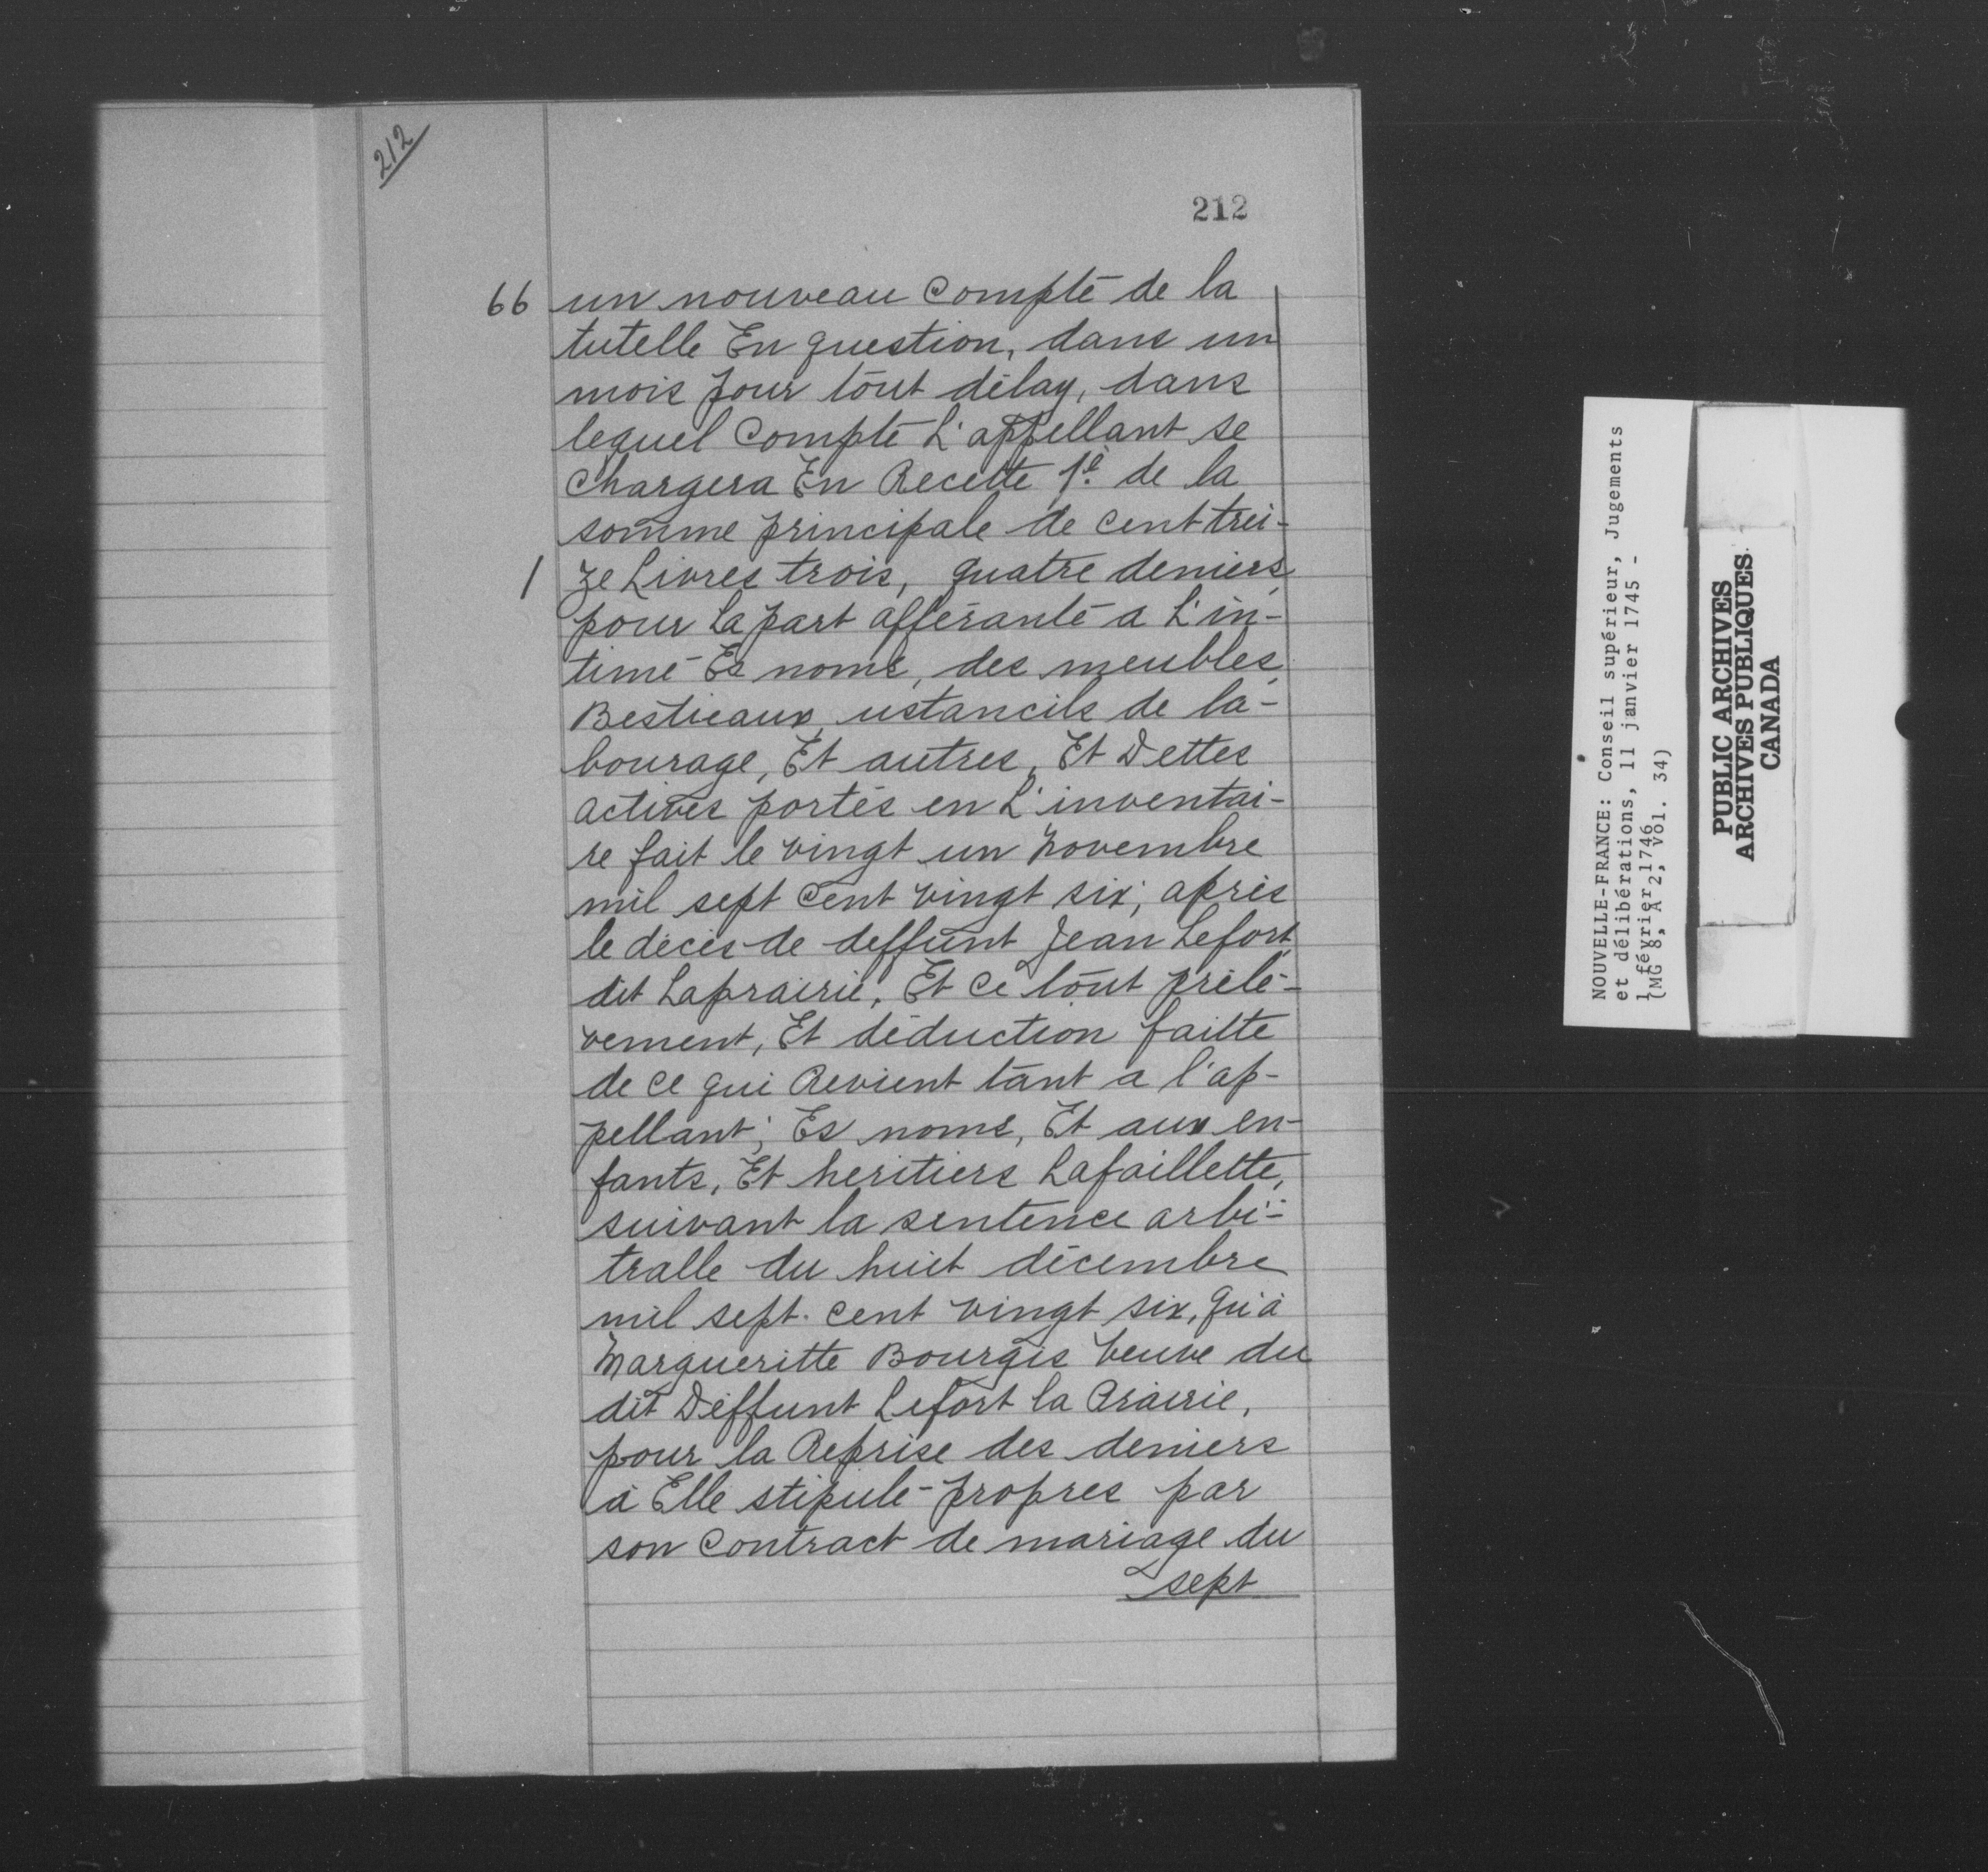 212
212
66 un nouveau Compte de la
tutelle En question, dans un
mois pour tout délay, dans
lequel Compte L'appellant se
Chargera En Recette 1º. de la
somme principale de Cent trei-
/ ze Livres trois, quatre deniers,
pour La part afférante a L'in-
timé Es noms, des meubles,
Bestieaux, ustancils de la-
bourage, Et autres, Et Dettes
actives portés en L'inventai-
re fait le vingt un Novembre
mil sept Cent vingt six, après
le décès de deffunt Jean Lefort,
dit Laprairie, Et Ce tout prélé-
vement, Et déduction faitte
de Ce qui Revient tant a l'ap-
pellant; Es noms, Et aux en-
fants, Et heritiers Lafaillette,
suivant la sentence arbi-
tralle du huit décembre
mil sept. cent vingt six, qu'à
Margueritte Bourgis Veuve du
dit Deffunt Lefort la Prairie,
pour la Reprise des deniers
à Elle stipulé propres par
son Contract de mariage du
sept
NOUVELLE-FRANCE: Conseil supérieur, Jugements
et délibérations, 11 janvier 1745 -
1 février 1746
(MG 8, A 2, vol. 34)
PUBLIC ARCHIVES
ARCHIVES PUBLIQUES
CANADA